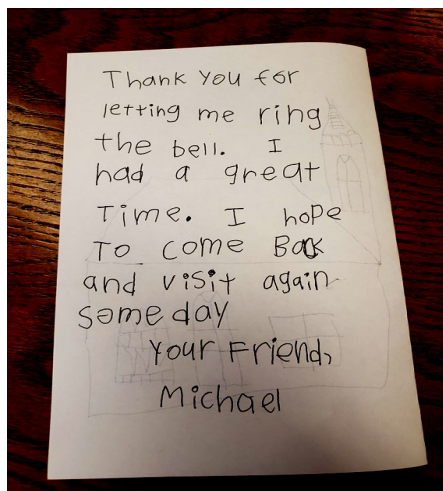 Thank You for
letting me ring
the bell. I
had a great
Time. I hope
To come Back
and visit again
some day
Your Friend,
Michael